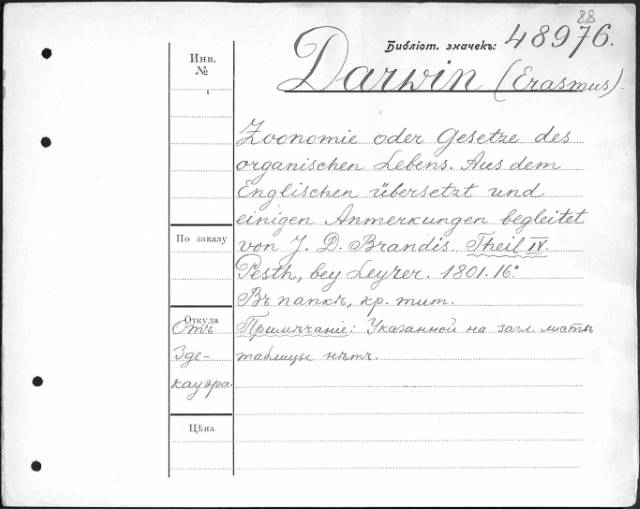 88
Библіот. значекъ: 48976.
Инв. №
Darwin (Erasmus).
Zoonomie oder Gesetze des
organischen Lebens. Aus dem
Englischen übersetzt und
einigen Anmerkungen begleitet
По заказу
von J. D. Brandis. Theil IV.
Pesth, bey Leyrer. 1801. 16°
Въ папкѣ, кр. тит.
Откуда
Отъ
Здекауэра.
Примѣчаніе: Указанной на загл. листѣ
таблицы нѣтъ.
Цѣна